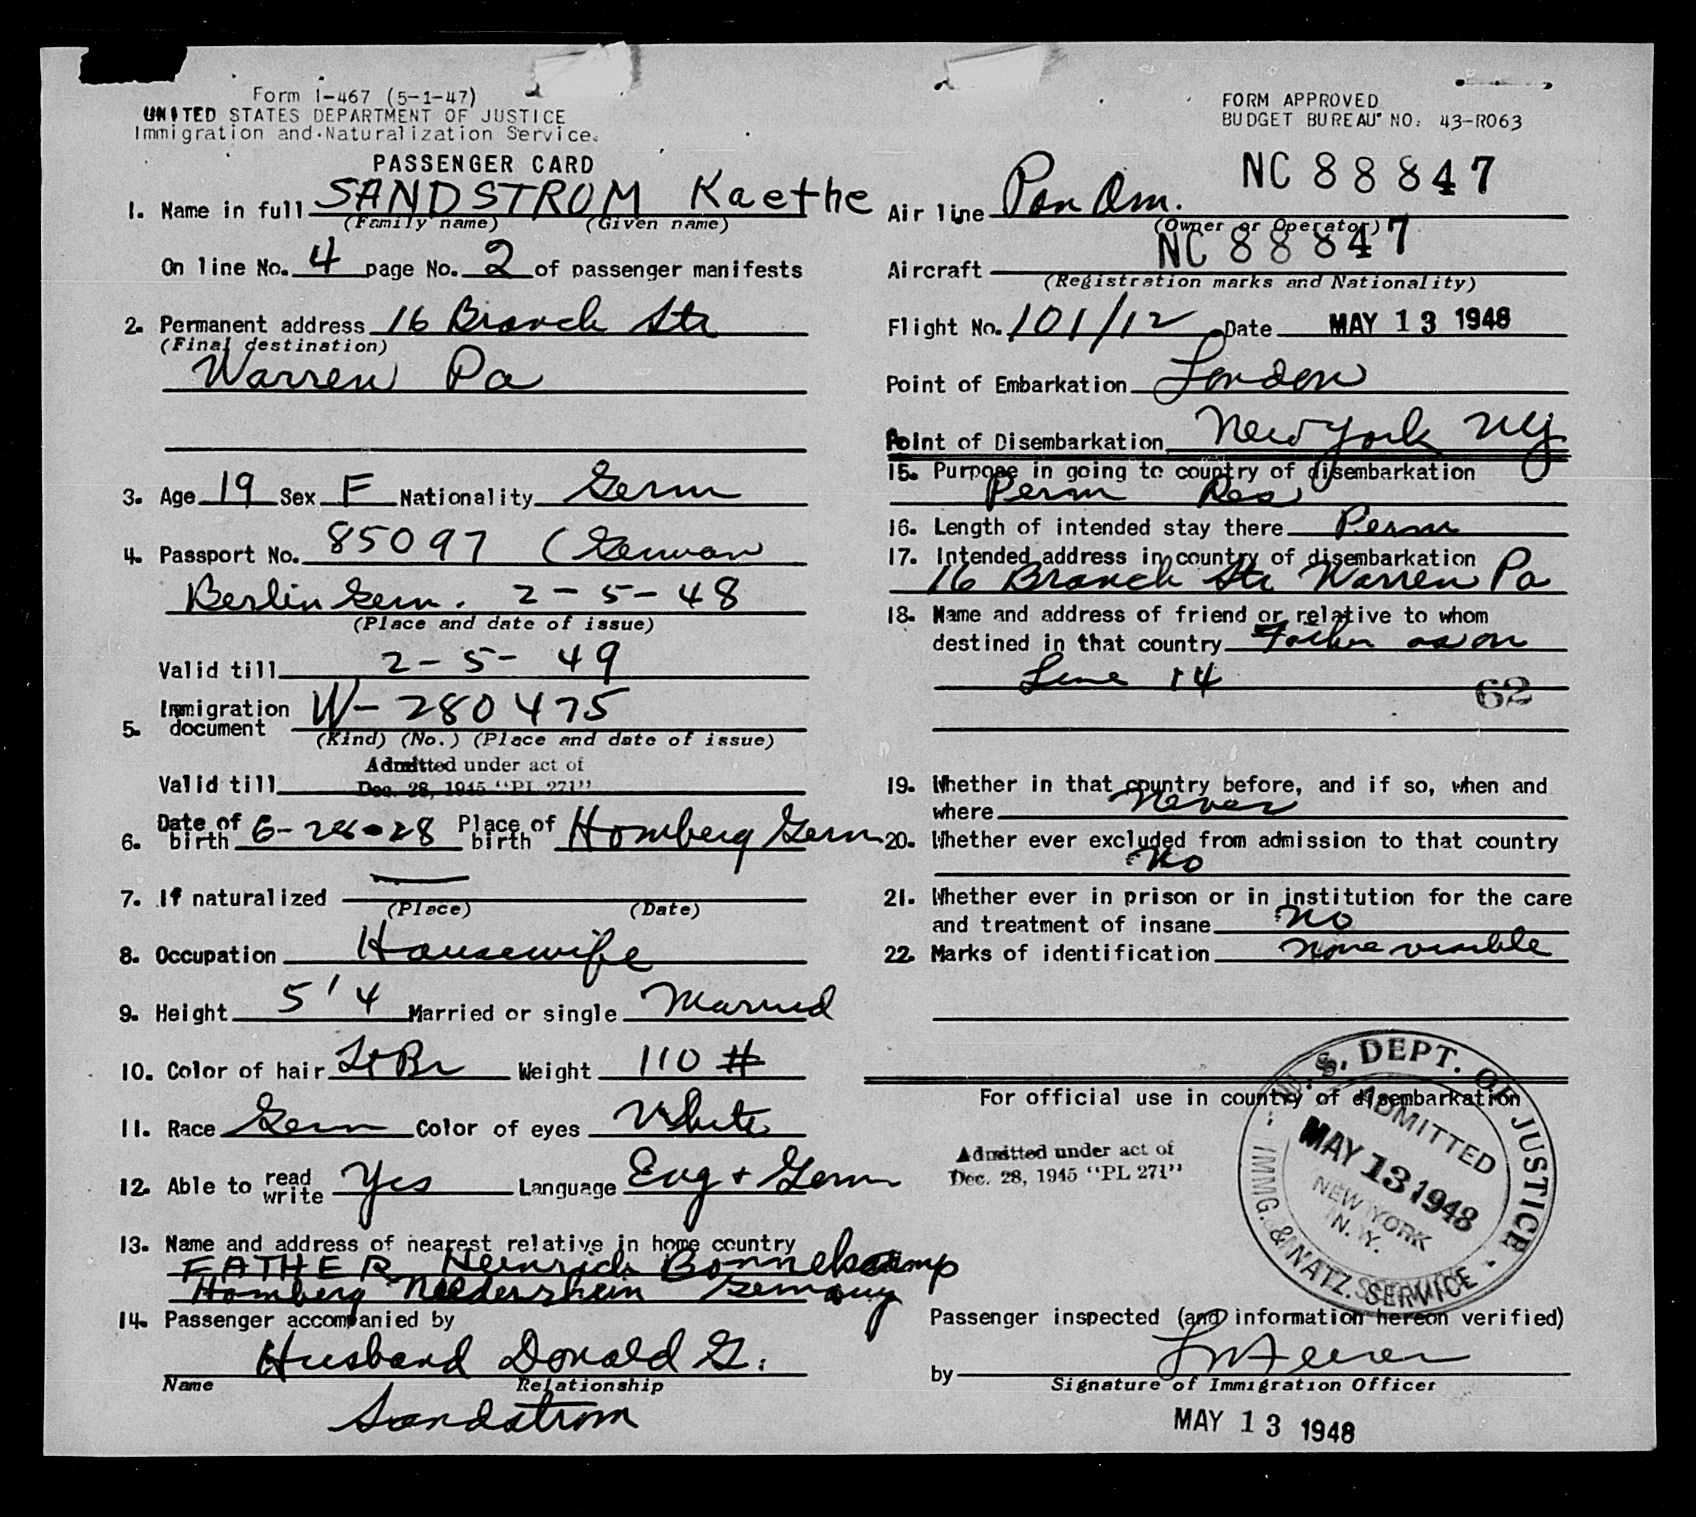 Form I-467 (5-1-47)
UNITED STATES DEPARTMENT OF JUSTICE
Immigration and Naturalization Service.
PASSENGER CARD
1. Name in full SANDSTROM Kaethe
(Family name) (Given name)
On line No. 4 page No. 2 of passenger manifests
2. Permanent address 16 Branch Str
(Final destination)
Warren Pa
3. Age 19 Sex F Nationality Germ
4. Passport No. 85097 (German
Berlin Germ. 2-5-48
(Place and date of issue)
Valid till 2-5-49
5. Immigration document W-280475
(Kind) (No.) (Place and date of issue)
Admitted under act of
Valid till Dec. 28, 1945 "PL 271"
6. Date of birth 6- -28 Place of birth Homberg Germ
7. If naturalized —
(Place) (Date)
8. Occupation Housewife
9. Height 5'4 Married or single Married
10. Color of hair Lt Br Weight 110 #
11. Race Germ Color of eyes White
12. Able to read write Yes Language Eng + Germ
13. Name and address of nearest relative in home country
FATHER Heinrich Bonnekamp
Homberg Niederrhein Germany
14. Passenger accompanied by
Husband Donald G.
Name Relationship
Sandstrom
FORM APPROVED
BUDGET BUREAU NO. 43-R063
NC 88847
Air line Pan Am.
(Owner or Operator)
NC 88847
Aircraft
(Registration marks and Nationality)
Flight No. 101/12 Date MAY 13 1948
Point of Embarkation London
Point of Disembarkation New York NY
15. Purpose in going to country of disembarkation
Perm Res
16. Length of intended stay there Perm
17. Intended address in country of disembarkation
16 Branch Str Warren Pa
18. Name and address of friend or relative to whom
destined in that country Father as on
Line 14
62
19. Whether in that country before, and if so, when and
where Never
20. Whether ever excluded from admission to that country
No
21. Whether ever in prison or in institution for the care
and treatment of insane No
22. Marks of identification None visible
For official use in country of disembarkation
Admitted under act of
Dec. 28, 1945 "PL 271"
U.S. DEPT. OF JUSTICE
ADMITTED
MAY 13 1948
NEW YORK
N.Y.
IMMG. & NATZ. SERVICE
Passenger inspected (and information hereon verified)
by
Signature of Immigration Officer
MAY 13 1948